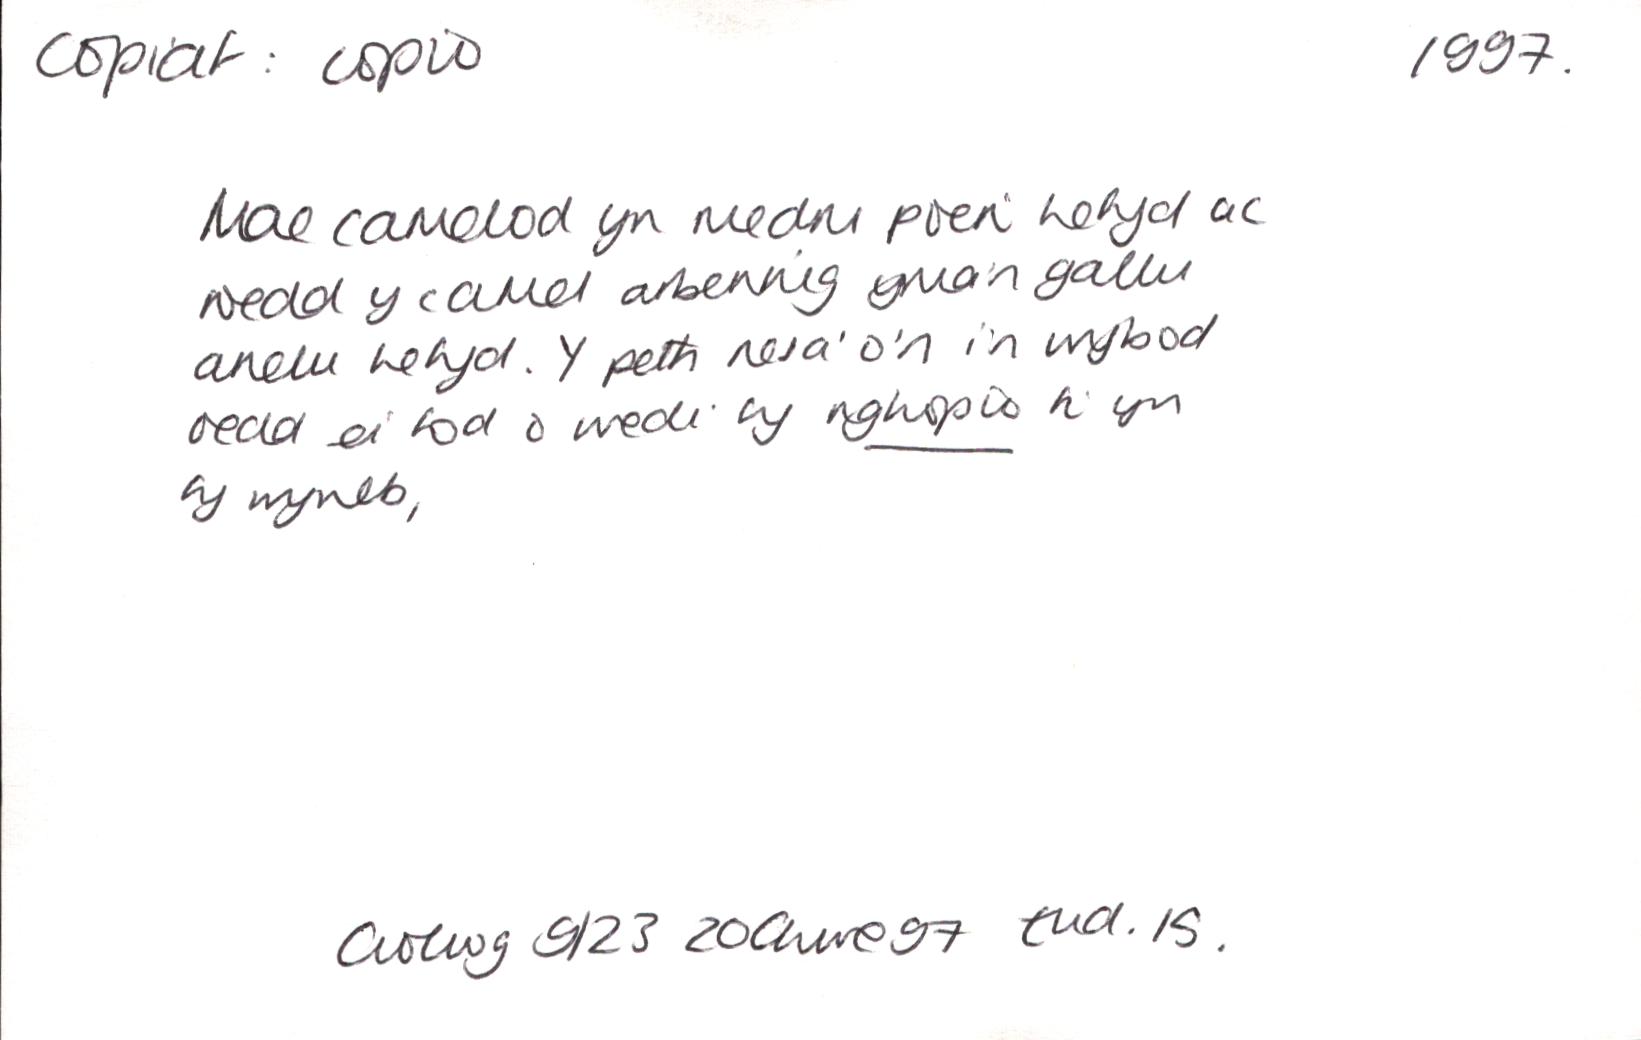 copiaf: copio 1997.
Mae camelod yn medru poeri hefyd ac
roedd y camel arbennig yma'n gallu
anelu hefyd. Y peth nesa' o'n i'n wybod
oedd ei fod o wedi fy nghopio i yn
fy wyneb,
Golwg 9/23 20Chwe97 tud. 15.